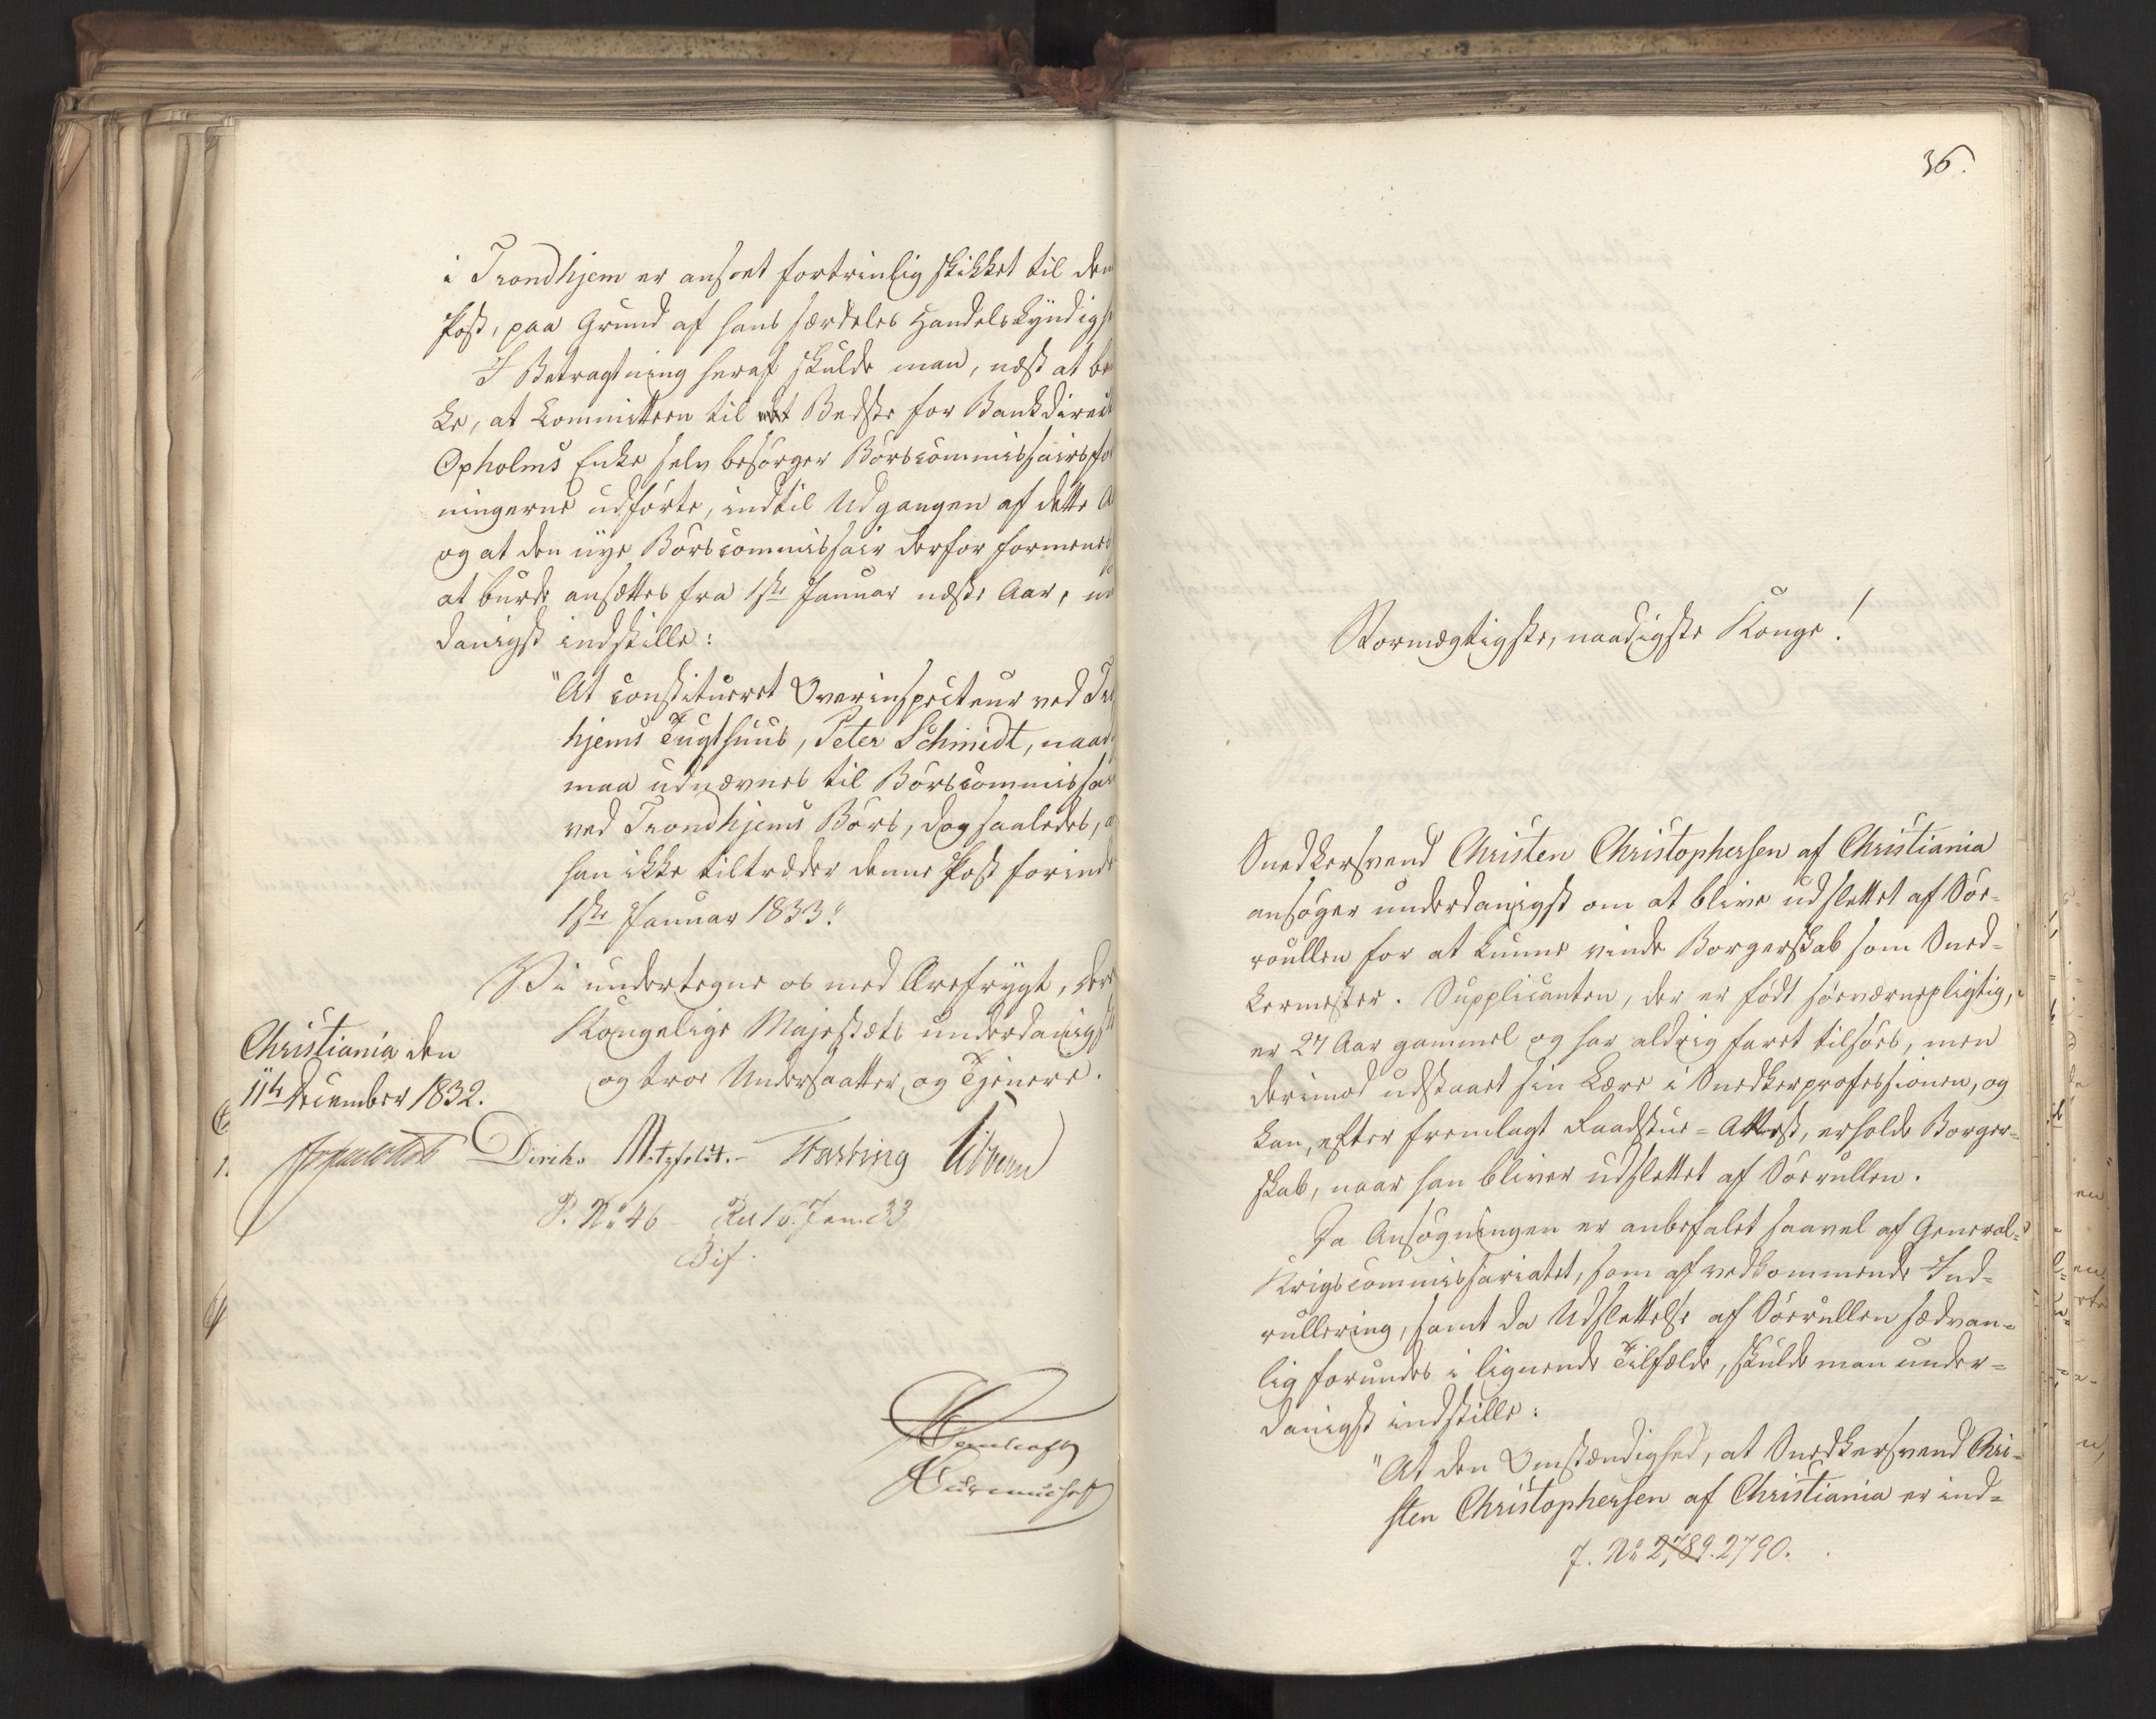 i Trondhjem er anseet fortrinlig skikket til den
Post, paa Grund af hans særdeles Handelskyndigh
I Betragtning heraf skulde man, næst at be
ke, at Committeen til det Bedste for Bankdirect
Opholms Enke selv besörger Börscommissairsfo
ningerne udförte, indtil Udgangen af dette A
og at den nye Börscommissair derfor formenes
at burde ansættes fra 1ste Januar næste Aar, un
danigst indstille:
"At constitueret Overinspecteur ved Tr
hjems Tugthuus, Peter Schmidt, naad
maa udnævnes til Börscommissai
ved Trondhjems Börs, dog saaledes, a
han ikke tiltræder denne Post forinde
1ste Januar 1833."
Vi undertegne os med Ærefrygt, Der
Kongelige Majestæts underdanigst
og troe Undersaatter og Tjenere.
Christiania den
11te December 1832.
Diriks Motzfeldt. Fasting Vibe
P. No 46 Res 10. Jan. 33
Bif.
36.
Stormægtigste, naadigste Konge!
Snedkersvend Christen Christophersen af Christiania
ansöger underdanigst om at blive udslettet af Söe-
roullen for at kunne vinde Borgerskab som Sned-
kermester. Supplicanten, der er födt söeværnepligtig,
er 27 Aar gammel og har aldrig faret tilsöes, men
derimod udstaaet sin Lære i Snedkerprofessionen, og
kan, efter fremlagt Raadstue-Attest, erholde Borger-
skab, naar han bliver udslettet af Söerullen.
Da Ansögningen er anbefalet saavel af General-
Krigscommissariatet, som af vedkommende Ind-
rullering, samt da Udslettelse af Söerullen sædvan-
lig forundes i lignende Tilfælde, skulde man under-
danigst indstille:
"At den Omstændighed, at Snedkersvend Chri-
sten Christophersen af Christiania er ind-
J. No 2789. 2790.